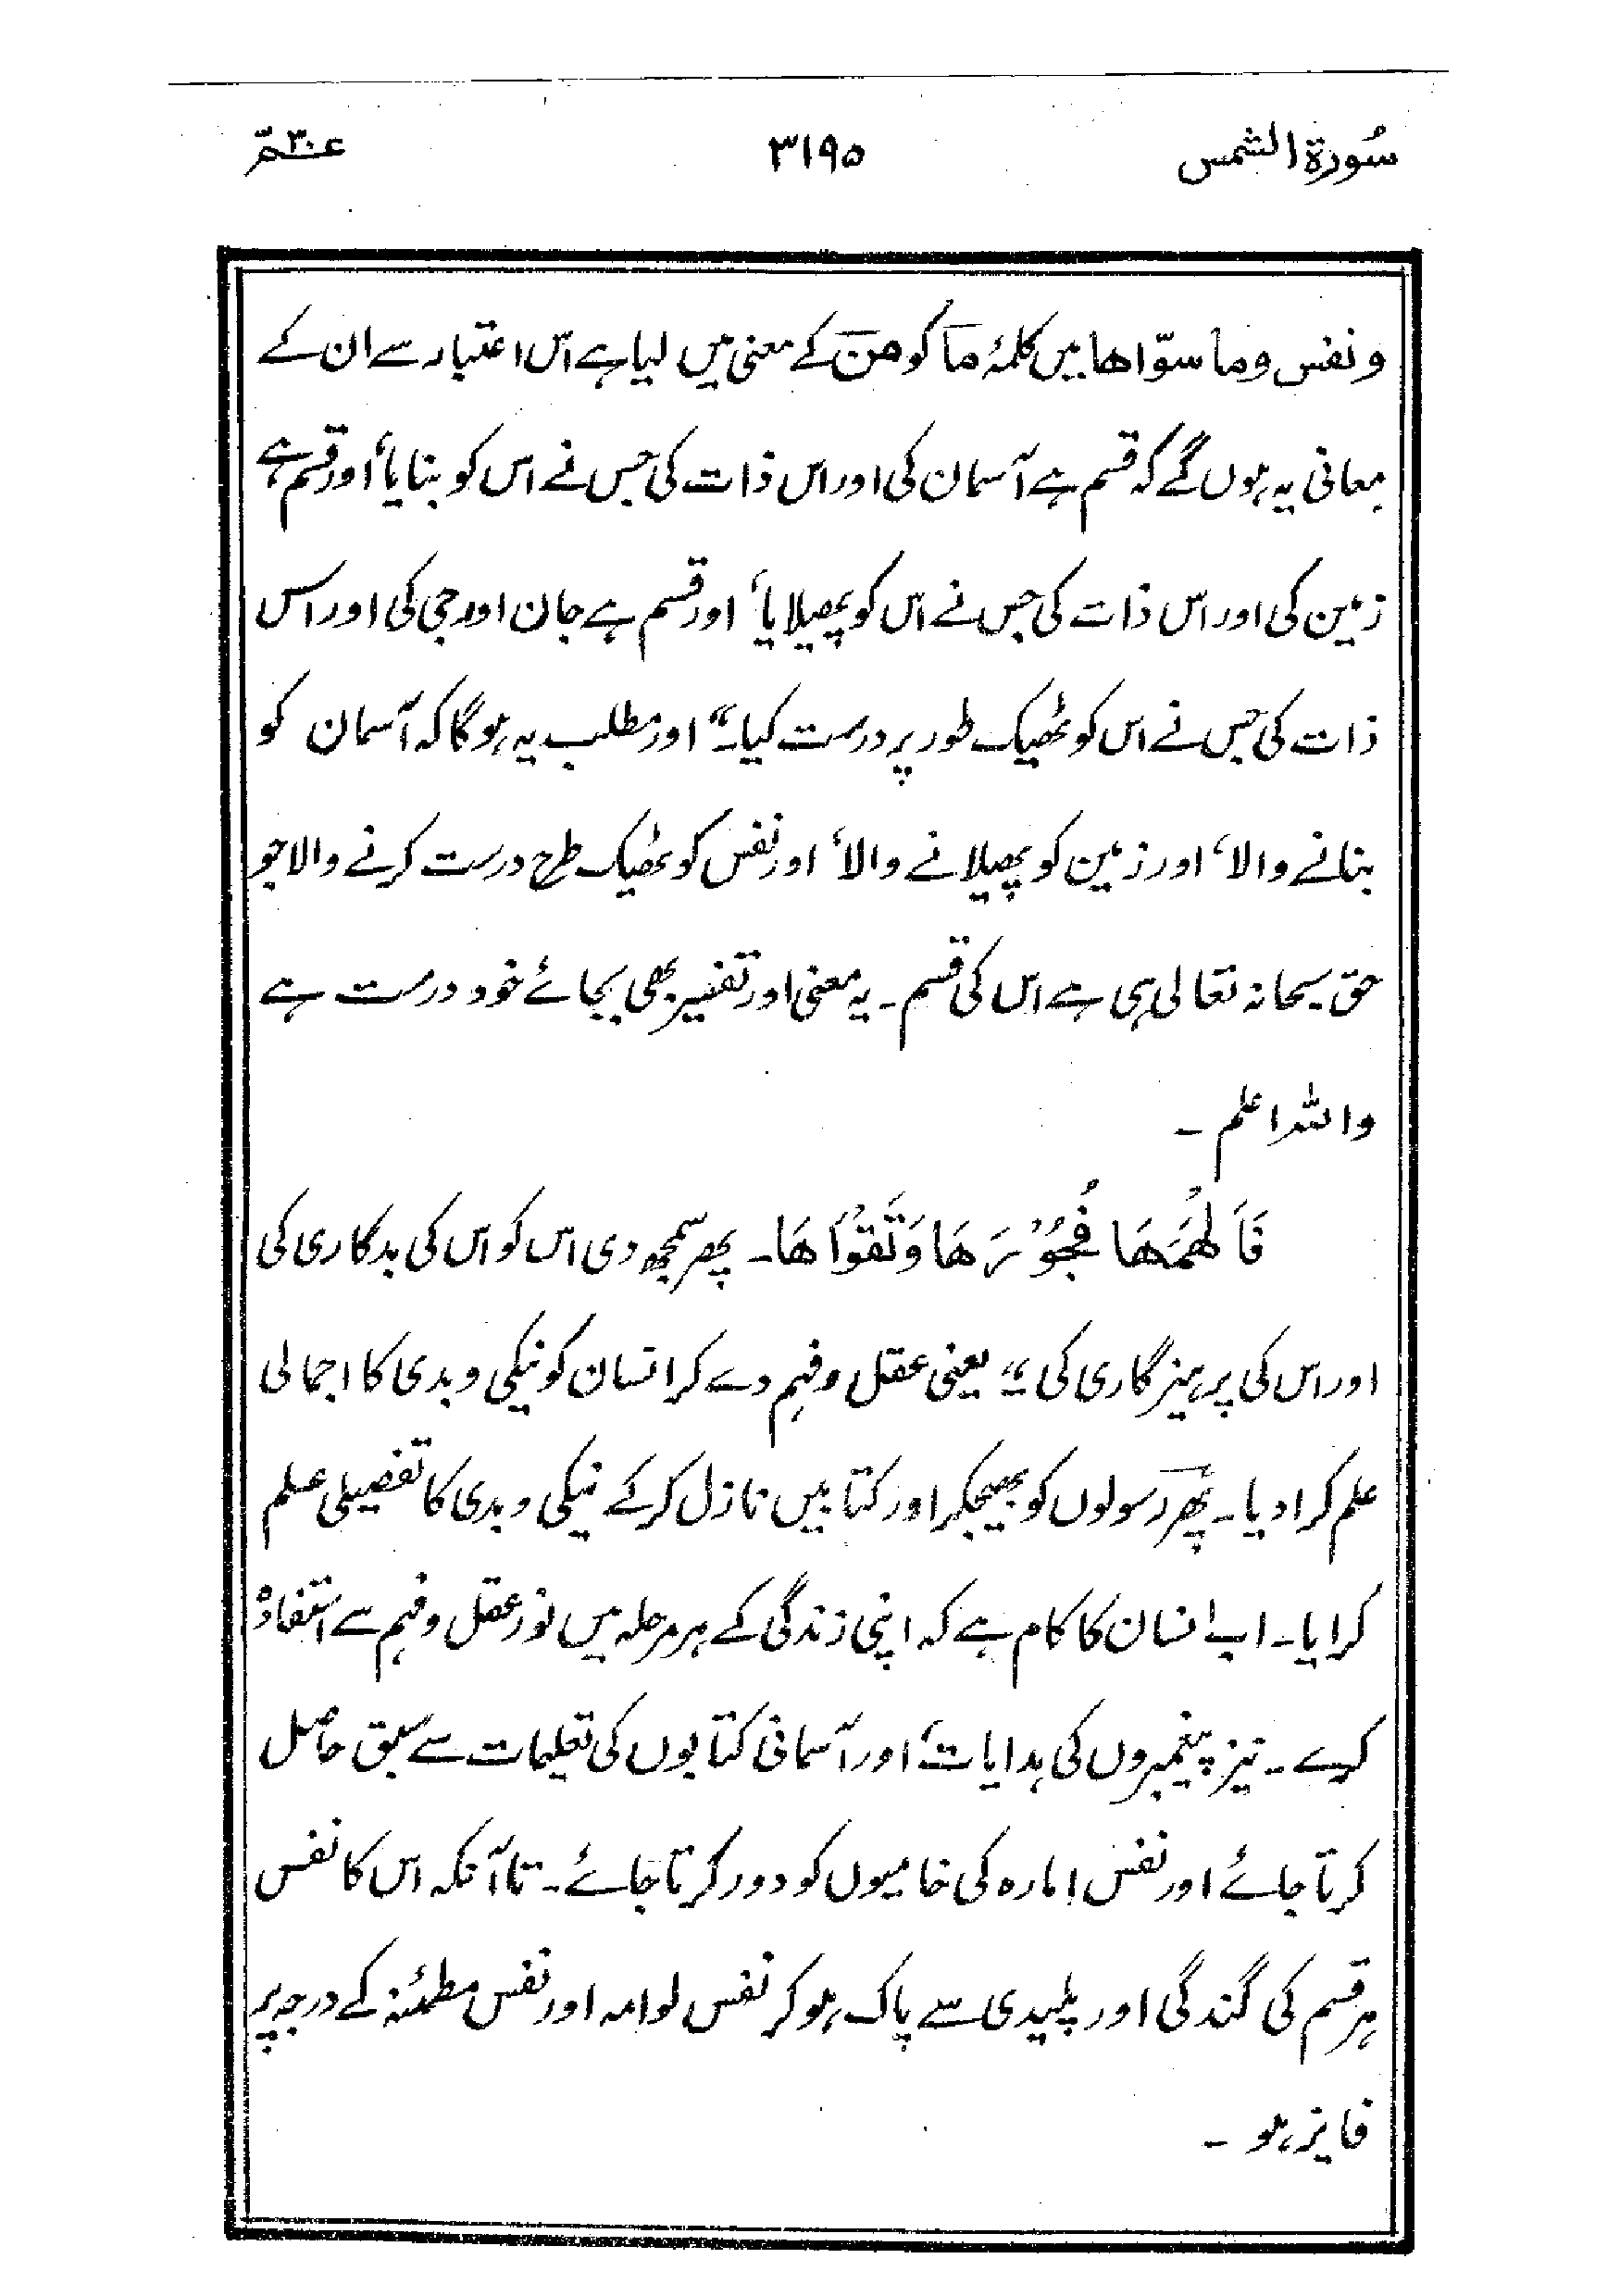 سُورة الشمس ۳۱۹۵ عمّ ۳۰
و نفس وما سوّاھا میں کلمۂ ما کو من کے معنی میں لیا ہے اس اعتبار سے ان کے
معانی یہ ہوں گے کہ قسم ہے آسمان کی اور اس ذات کی جس نے اس کو بنایا، اور قسم ہے
زمین کی اور اس ذات کی جس نے اس کو پھیلایا، اور قسم ہے جان اور جی کی اور اس
ذات کی جس نے اس کو ٹھیک طور پر درست کیا۔" اور مطلب یہ ہوگا کہ آسمان کو
بنانے والا، اور زمین کو پھیلانے والا، اور نفس کو ٹھیک طرح درست کرنے والا جو
حق سبحانہ تعالی ہی ہے اس کی قسم۔ یہ معنی اور تفسیر بھی بجائے خود درست ہے
واللہ اعلم۔
فَاَلْهَمَهَا فُجُوْرَهَا وَتَقْوٰاهَا۔ پھر سمجھ دی اس کو اس کی بدکاری کی
اور اس کی پرہیزگاری کی"۔ یعنی عقل و فہم دے کر انسان کو نیکی و بدی کا اجمالی
علم کرا دیا۔ پھر رسولوں کو بھیجکر اور کتابیں نازل کرکے نیکی و بدی کا تفصیلی علم
کرایا۔ اب انسان کا کام ہے کہ اپنی زندگی کے ہر مرحلہ میں نور عقل و فہم سے استفادہ
کرے۔ نیز پیغمبروں کی ہدایات، اور آسمانی کتابوں کی تعلیمات سے سبق حاصل
کرتا جائے اور نفس امارہ کی خامیوں کو دور کرتا جائے۔ تا آنکہ اس کا نفس
ہر قسم کی گندگی اور پلیدی سے پاک ہو کر نفس لوامہ اور نفس مطمئنہ کے درجہ پر
فایز ہو۔